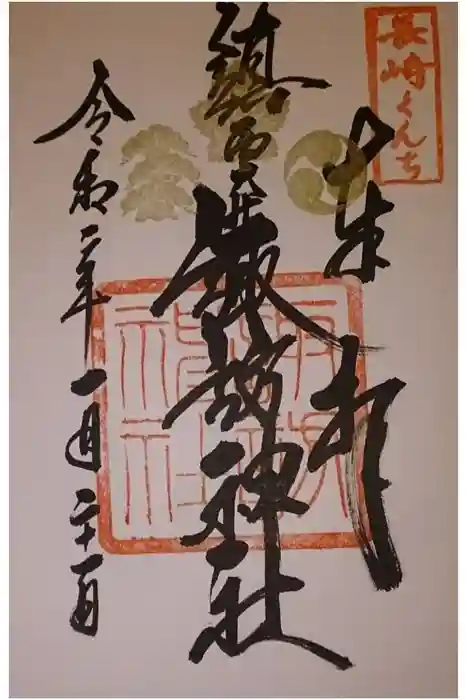 長崎くんち
奉拝
鎮西
諏訪神社
諏訪神社
令和二年一月二十一日